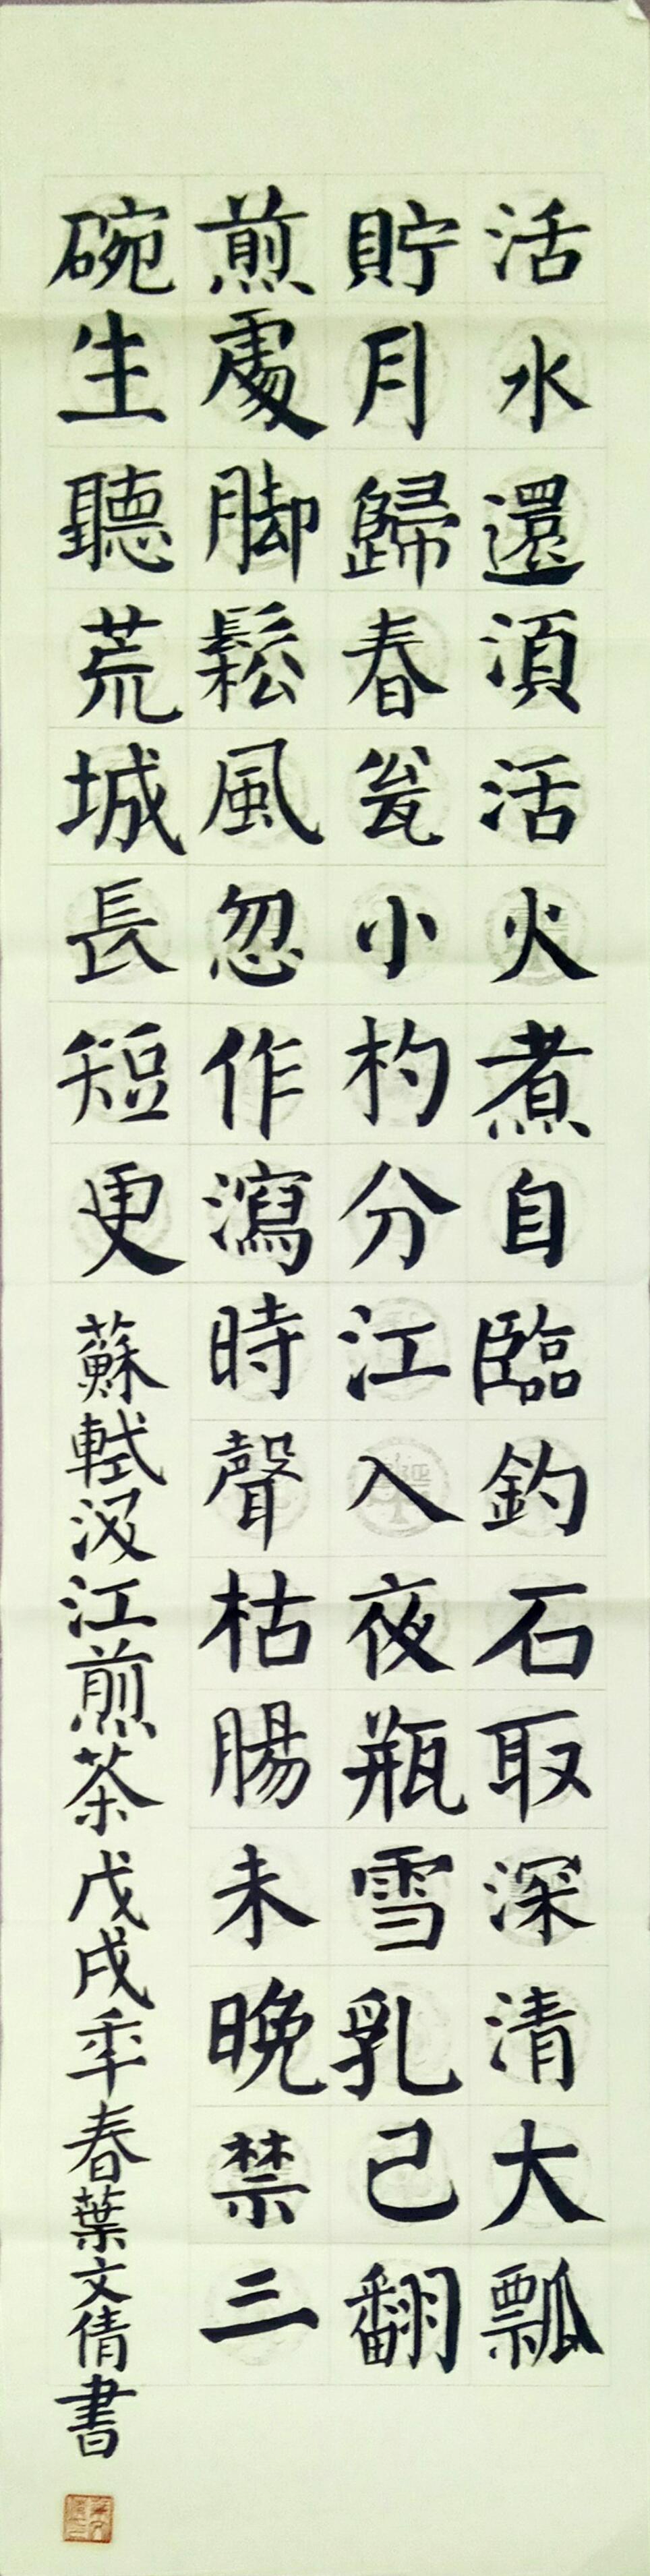 活水還須活火煮自臨釣石取深清大瓢
貯月歸春瓮小杓分江入夜瓶雪乳已翻
煎處脚鬆風忽作瀉時聲枯腸未晚禁三
碗坐聽荒城長短更 蘇軾汲江煎茶 戊戌年春葉文倩書